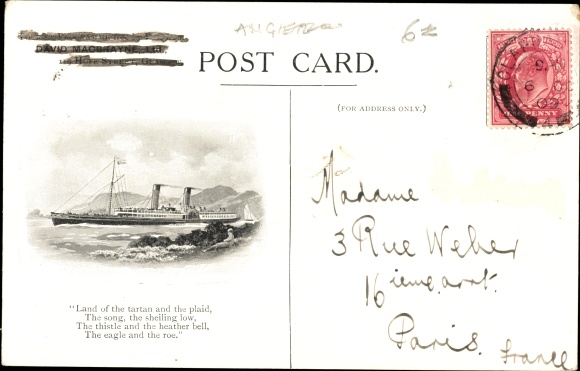 DAVID MACBRAYNE, LTD.
POST CARD.
(FOR ADDRESS ONLY.)
"Land of the tartan and the plaid,
The song, the sheiling low,
The thistle and the heather bell,
The eagle and the roe."
Madame
3 Rue Weber
16 ieme arrt.
Paris.
France
PENNY